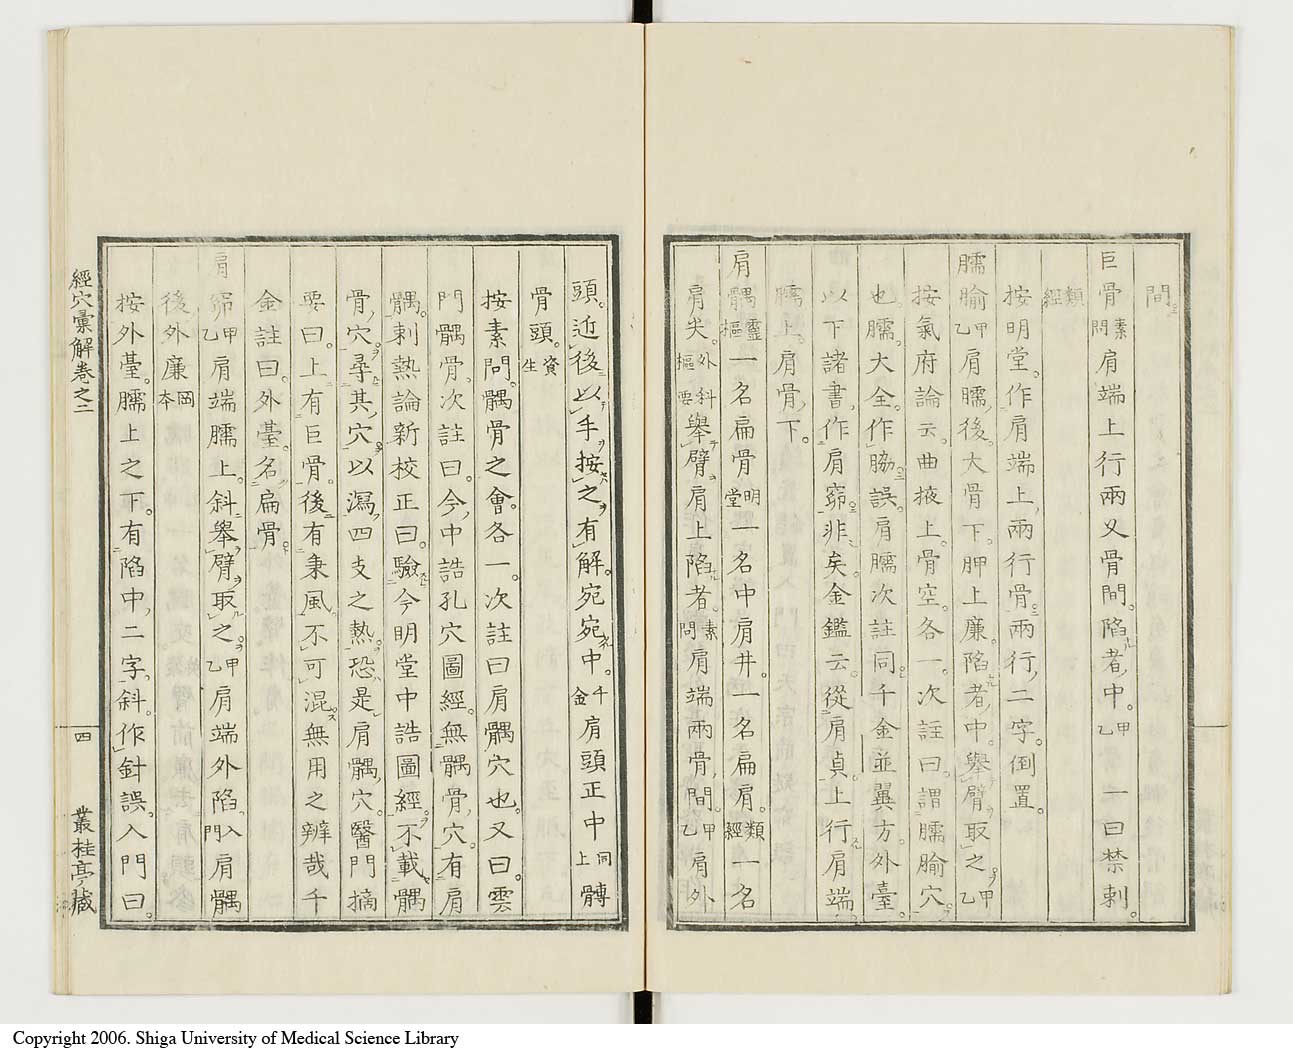 間。
巨骨素問肩端上行兩叉骨間。陷者中。甲乙一曰禁刺。
類經
按明堂。作肩端上兩行骨。兩行二字。倒置。
臑腧甲乙肩臑後大骨下。胛上廉。陷者中。舉臂取之。甲乙
按氣府論云。曲掖上骨空。各一。次註曰。謂臑腧穴。
也。臑。大全。作脇。誤。肩臑次註同。千金並翼方。外臺。
以下諸書。作肩窌。非矣。金鑑云。從肩貞。上行肩端。
臑上。肩骨下。
肩髃靈樞一名扁骨明堂一名中肩井。一名扁肩。類經一名
肩尖。外科樞要舉臂。肩上陷者。素問肩端兩骨間。甲乙肩外
頭。近後。以手按之。有解。宛宛中。千金肩頭正中同上髆
骨頭。資生
按素問。髃骨之會。各一。次註曰肩髃穴也。又曰。雲
門髃骨。次註曰。今中誥孔穴圖經。無髃骨穴。有肩
髃。刺熱論新校正曰。驗今明堂中誥圖經。不載髃
骨穴。尋其穴。以瀉四支之熱。恐是肩髃穴。醫門摘
要曰。上有巨骨。後有秉風。不可混。無用之辨哉千
金註曰。外臺。名扁骨。
肩窌甲乙肩端臑上。斜舉臂取之。甲乙肩端外陷。入門肩髃
後外廉岡本
按外臺。臑上之下。有陷中二字。斜。作針誤。入門曰。
經穴彙解卷之二
四
叢桂亭藏
Copyright 2006. Shiga University of Medical Science Library